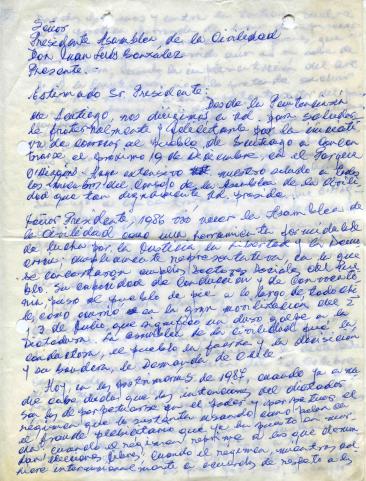 Señor
Presidente Asamblea de la Civilidad
Don Juan Luis González
Presente.-
Estimado Sr. Presidente:
Desde la Penitenciaría
de Santiago, nos dirigimos a Ud. para saludar
le fraternalmente y adelante por la iniciati
va de convocar al pueblo de Santiago a concen
trarse, el próximo 19 de Diciembre, en el Parque
O'Higgins. Hago extensivo nuestro saludo a todos
los miembros del Consejo de la Asamblea de la Civili
dad que tan dignamente Ud. preside.
Señor Presidente, 1986 vio nacer la Asamblea de
la Civilidad como una herramienta formidable
de lucha por la Justicia, la Libertad y la Demo
cracia; ampliamente representativa, en la que
se concertaron amplios sectores sociales del Pue
blo. Su capacidad de Conducción y de Convocato
ria puso al pueblo de pie a lo largo de todo Chi
le, como ocurrió en la gran movilización del 2
y 3 de Julio, que significó un duro golpe a la
Dictadura. La Asamblea de la Civilidad fue la
conductora, el pueblo la fuerza y la decisión
y su bandera, la Demanda de Chile.
Hoy, en las postrimerías de 1987, cuando ya a na
die cabe duda que las intenciones del dictador
son las de perpetuarse en el poder y perpetuar el
régimen que lo sustenta usando como palanca
el fraude plebiscitario que ya ha puesto en mar
cha; cuando el régimen reprime a los que deman
dan elecciones libres; cuando el régimen, mientras ad
hiere internacionalmente a acuerdos de respeto a los